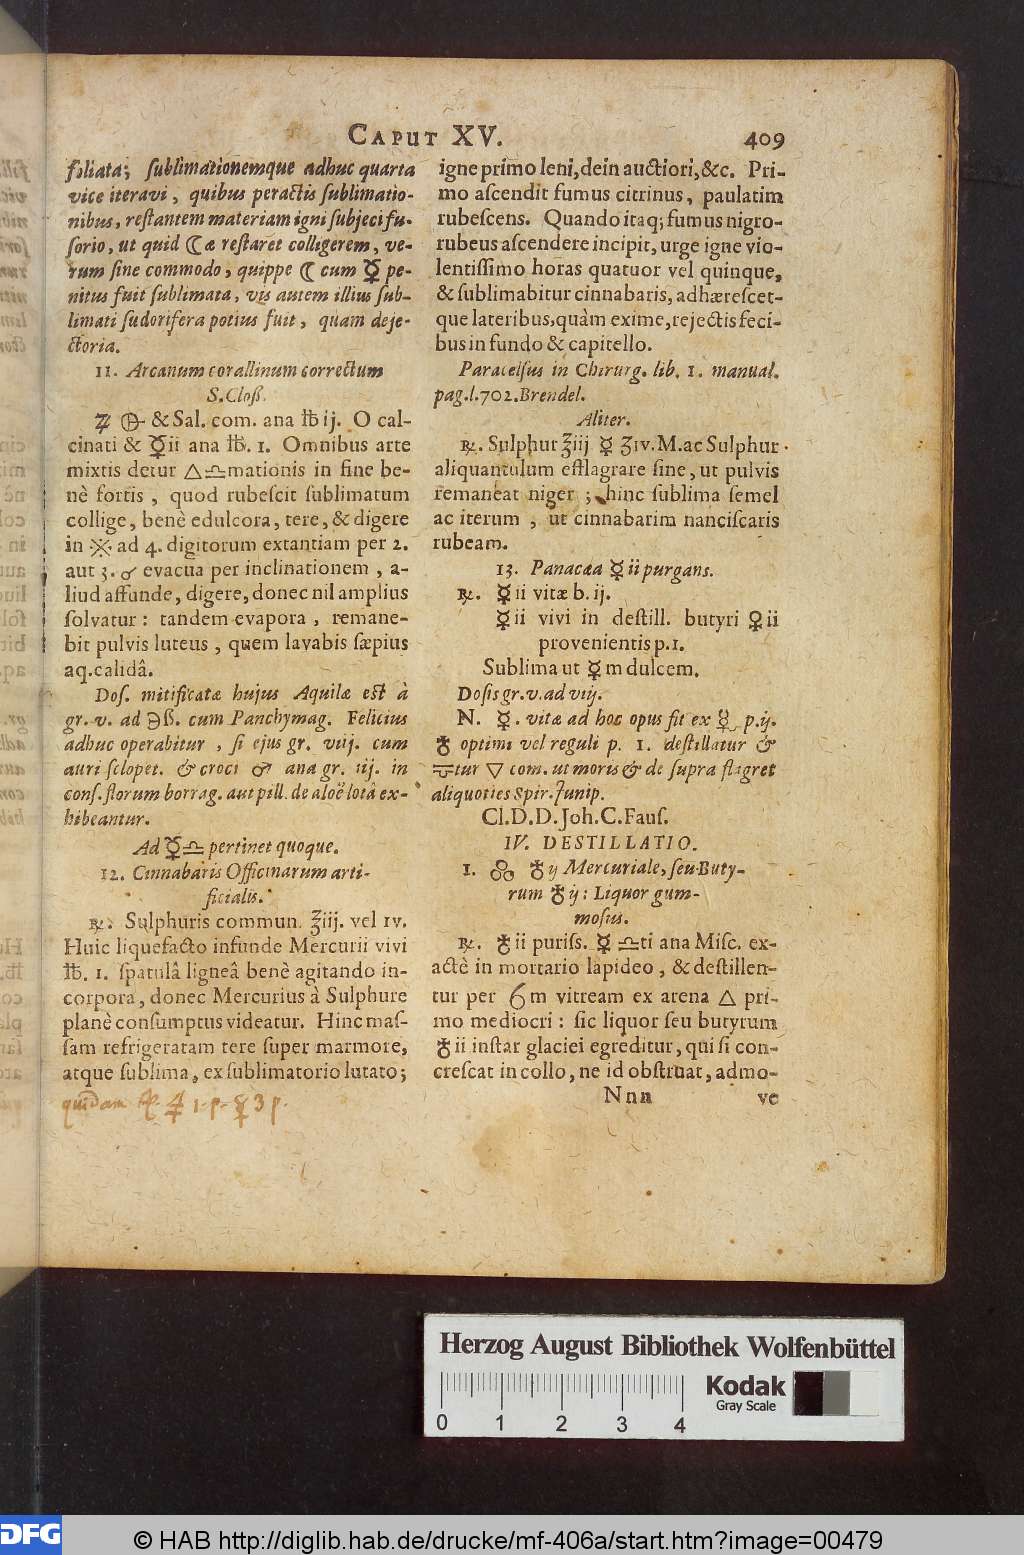 CAPUT XV. 409
foliata; ſublimationemque adhuc quarta
vice iteravi, quibus peractis ſublimatio-
nibus, reſtantem materiam igni ſubjeci fu-
ſorio, ut quid ☾æ reſtaret colligerem, ve-
rum ſine commodo, quippe ☾ cum ☿ pe-
nitus fuit ſublimata, vis autem illius ſub-
limati ſudorifera potius fuit, quam deje-
ctoria.
11. Arcanum corallinum correctum
S. Cloß.
& Sal. com. ana ℔ ij. O cal-
cinati & ☿ii ana ℔. 1. Omnibus arte
mixtis detur △♎mationis in fine be-
nè fortis, quod rubeſcit ſublimatum
collige, benè edulcora, tere, & digere
in ※ ad 4. digitorum extantiam per 2.
aut 3. evacua per inclinationem, a-
liud affunde, digere, donec nil amplius
ſolvatur: tandem evapora, remane-
bit pulvis luteus, quem lavabis ſæpius
aq. calidâ.
Doſ. mitificatæ hujus Aquilæ est à
gr. v. ad ℈ß. cum Panchymag. Felicius
adhuc operabitur, ſi ejus gr. viij. cum
auri ſclopet. & croci ♂ ana gr. iij. in
conſ. florum borrag. aut pill. de aloë lotâ ex-
hibeantur.
Ad ☿♎ pertinet quoque.
12. Cinnabaris Officinarum arti-
ficialis.
℞. Sulphuris commun. ℥iij. vel iv.
Huic liquefacto infunde Mercurii vivi
℔. 1. ſpatulâ ligneâ benè agitando in-
corpora, donec Mercurius à Sulphure
planè conſumptus videatur. Hinc maſ-
ſam refrigeratam tere ſuper marmore,
atque ſublima, ex ſublimatorio lutato;
igne primo leni, dein auctiori, &c. Pri-
mo aſcendit fumus citrinus, paulatim
rubeſcens. Quando itaq; fumus nigro-
rubeus aſcendere incipit, urge igne vio-
lentiſſimo horas quatuor vel quinque,
& ſublimabitur cinnabaris, adhæreſcet-
que lateribus, quàm exime, rejectis feci-
bus in fundo & capitello.
Paracelſus in Chirurg. lib. 1. manual.
pag. l. 702. Brendel.
Aliter.
℞. Sulphur ℥iij ☿ ℥iv. M. ac Sulphur
aliquantulum eſſlagrare ſine, ut pulvis
remaneat niger; hinc ſublima ſemel
ac iterum, ut cinnabarim nanciſcaris
rubeam.
13. Panacæa ☿ii purgans.
℞. ☿ii vitæ b. ij.
☿ii vivi in deſtill. butyri ♀ii
provenientis p. 1.
Sublima ut ☿m dulcem.
Doſis gr. v. ad viij.
N. ☿. vitæ ad hoc opus fit ex p. ij.
♁ optimi vel reguli p. 1. deſtillatur &
tur ▽ com. ut moris & de ſupra flagret
aliquoties Spir. Junip.
Cl. D. D. Joh. C. Fauſ.
IV. DESTILLATIO.
1. ♁ij Mercuriale, ſeu Buty-
rum ♁ij: Liquor gum-
moſus.
℞. ♁ii puriſs. ☿ ♎ti ana Miſc. ex-
actè in mortario lapideo, & deſtillen-
tur per m vitream ex arena △ pri-
mo mediocri: ſic liquor ſeu butyrum
♁ii inſtar glaciei egreditur, qui ſi con-
creſcat in collo, ne id obſtruat, admo-
Nnn ve
quidam 1. p. 3 p.
Herzog August Bibliothek Wolfenbüttel
0 1 2 3 4
Kodak
Gray Scale
DFG
© HAB http://diglib.hab.de/drucke/mf-406a/start.htm?image=00479